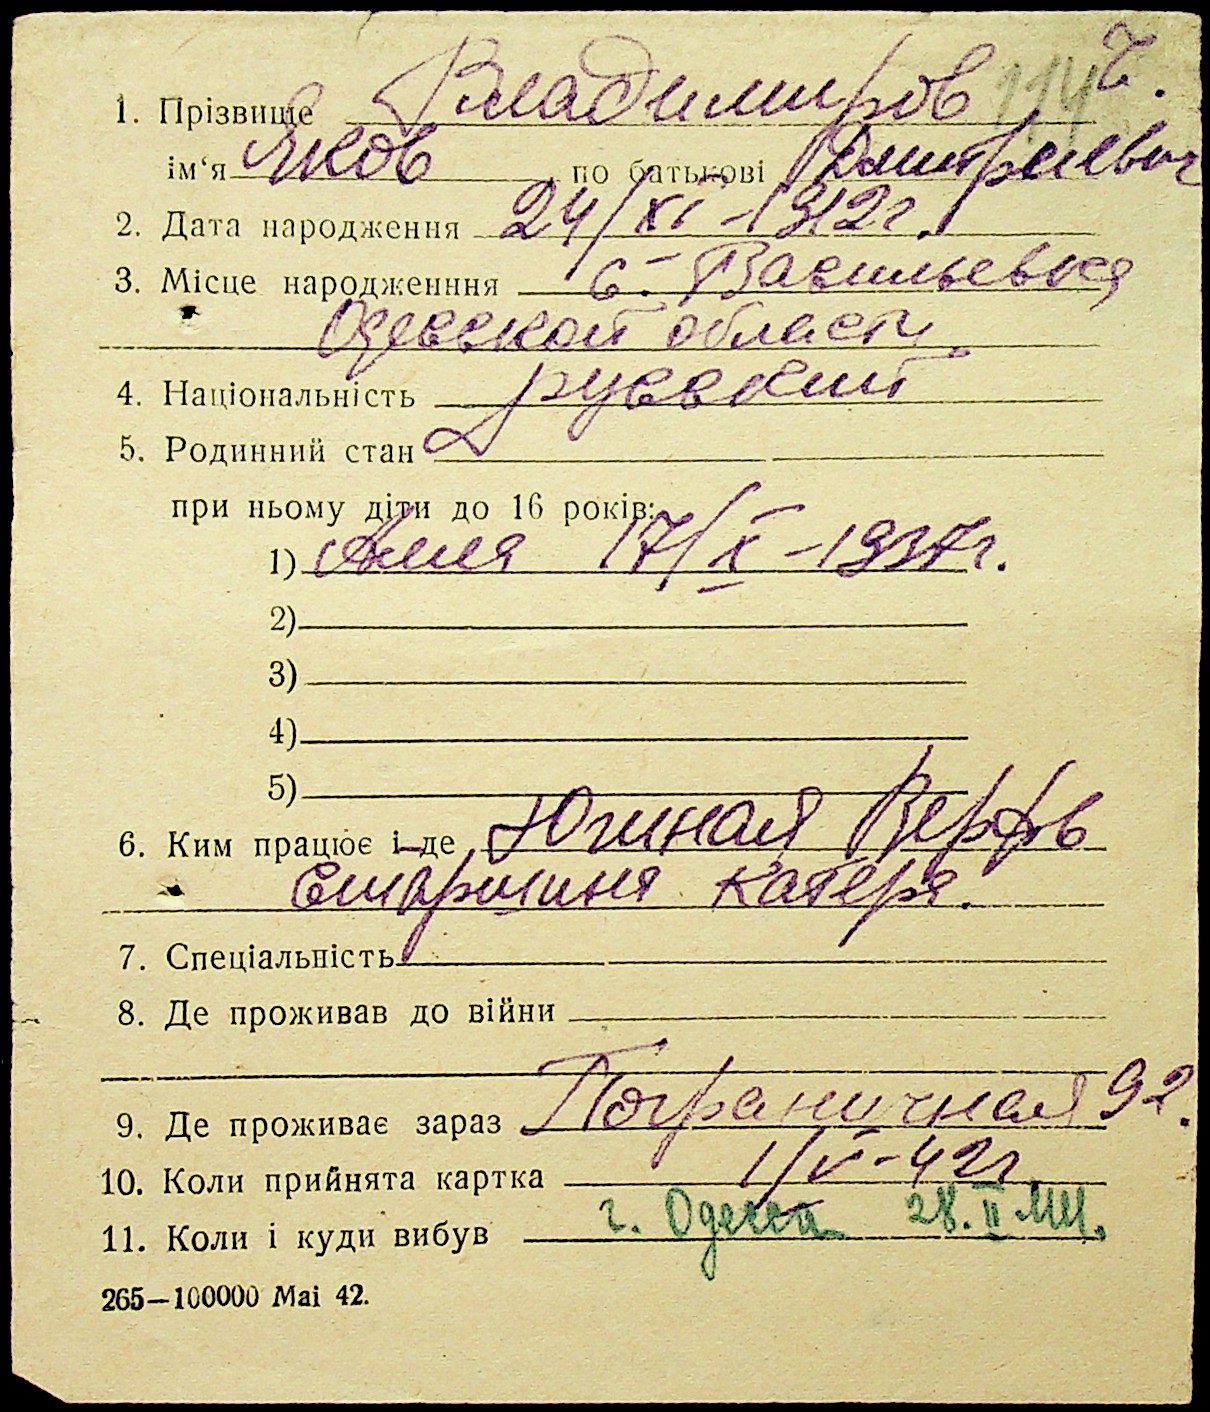 1. Прізвище Владимиров 114 Ч.
ім‘я Яков по батькові Дмитриевич
2. Дата народження 24/XI-1912г.
3. Місце народженння с. Васильевка
Одесской области
4. Національність русский
5. Родинний стан
при ньому діти до 16 років:
1) Аиля 17/X-1937г.
2)
3)
4)
5)
6. Ким працює і де Южиная Верфь
Старшина катера.
7. Спеціальність
8. Де проживав до війни
9. Де проживає зараз Пограничная 92.
10. Коли прийнята картка 1/V-42г
11. Коли і куди вибув г. Одесса 28.II 44.
265—100000 Маі 42.